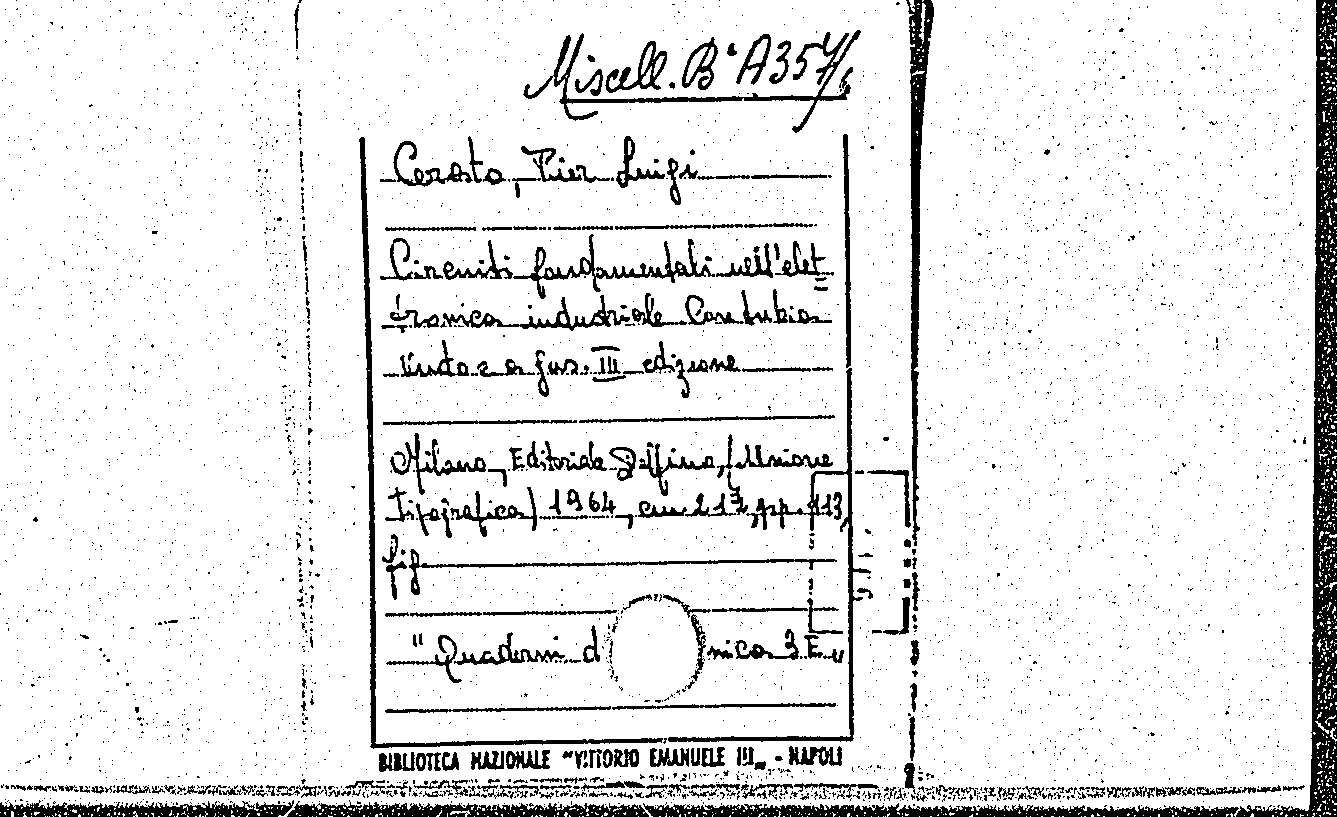 Miscell. B° A 357/6
Cerato, Pier Luigi
Circuiti fondamentali nell'elet=
tronica industriale Con tubi a
vuoto e a gas. III edizione
Milano, Editoriale Delfino, (Unione
Tipografica) 1964, cm. 21, pp. 113,
fig.
" Quaderni d nica 3 E "
BIBLIOTECA NAZIONALE "VITTORIO EMANUELE III„ - NAPOLI